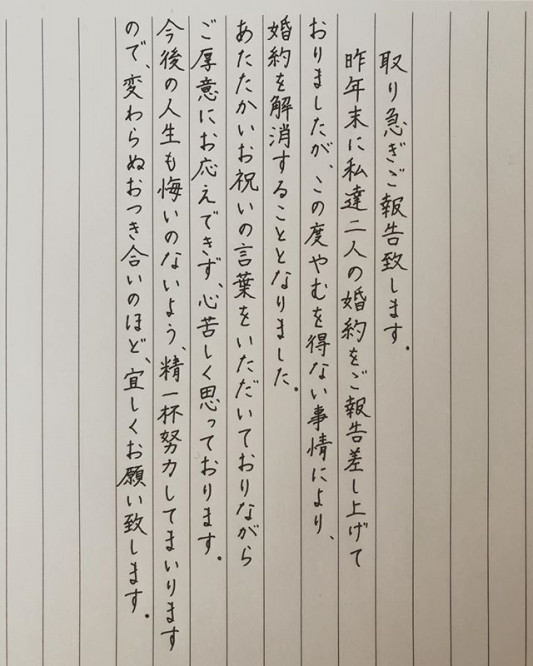 取り急ぎご報告致します。
昨年末に私達二人の婚約をご報告差し上げて
おりましたが、この度やむを得ない事情により、
婚約を解消することとなりました。
あたたかいお祝いの言葉をいただいておりながら
ご厚意にお応えできず、心苦しく思っております。
今後の人生も悔いのないよう、精一杯努力してまいります
ので、変わらぬおつき合いのほど、宜しくお願い致します。